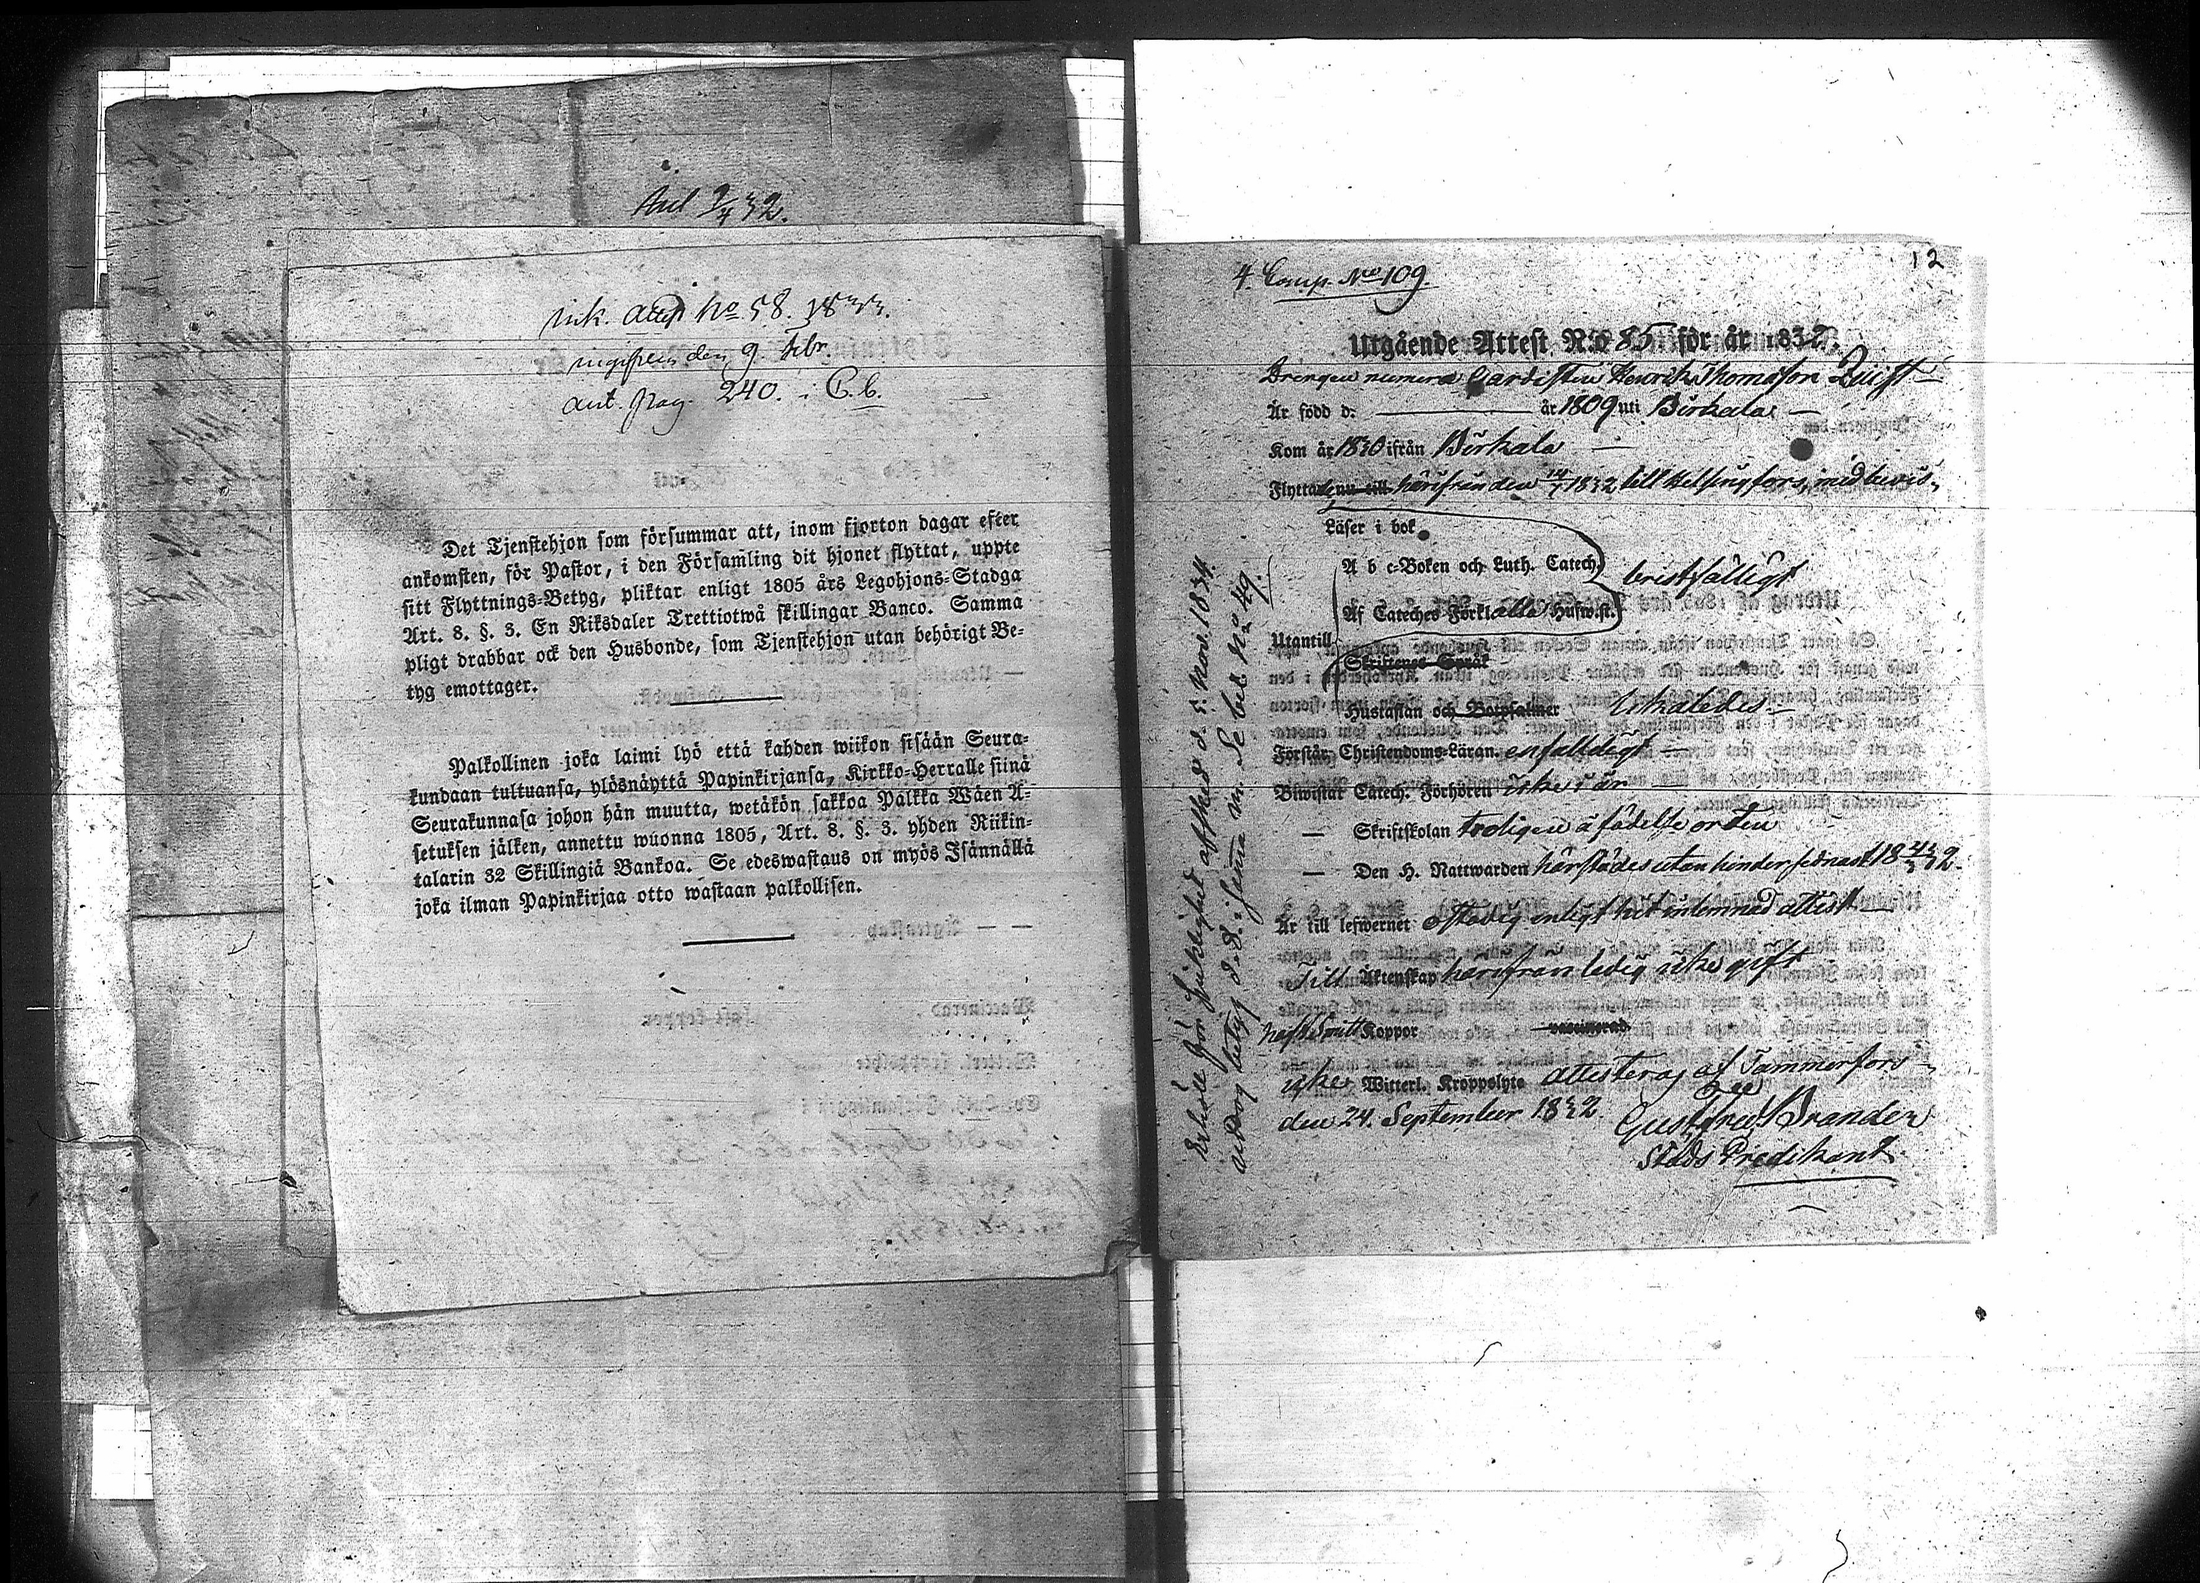 Aul 9/4 32.
ink. attest No 58. 1833.
den 9. febr.
ant. pag. 240. i C.b.
Det Tjenstehjon som försummar att, inom fjorton dagar efter
ankomsten, för Pastor, i den Församling dit hjonet flyttat, uppte
sitt Flyttnings-Betyg, pliktar enligt 1805 års Legohjons-Stadga
Art. 8. §. 3. En Riksdaler Trettiotwå skillingar Banco. Samma
pligt drabbar ock den Husbonde, som Tjenstehjon utan behörigt Be-
tyg emottager.
Palkollinen joka laimi lyö että kahden wiikon sisään Seura-
kundaan tultuansa, ylösnäyttä Papinkirjansa, Kirkko-Herralle siinä
Seurakunnasa johon hän muutta, wetäkön sakkoa Palkka Wäen A-
setuksen jälken, annettu wuonna 1805, Art. 8. §. 3. yhden Riikin-
talarin 32 Skillingiä Bankoa. Se edeswastaus on myös Isännällä
joka ilman Papinkirjaa otto wastaan palkollisen.
12
4. Comp. No 109.
Utgående Attest No 85 för år 1832.
Drengen numera Gardisten Henrik Thomasson Quist
Är född d. år 1809 uti Birkala
Kom år 1830 ifrån Birkala
Flyttade nu till härifrån den 14/7 1832 till Helsingfors, med bevis
Läser i bok
A b c-Boken och Luth. Catech.
bristfälligt
Af Cateches Förkl. alla Husw.st.
Utantill
Skriftenes Språk
Hustaflan och Botpsalmer likaledes
Förstår Christendoms-Läran enfaldigt
Biwistat Catech. Förhören icke i år
— Skriftskolan troligen å födelse orten
— Den H. Nattwarden härstädes utan hinder sednast 18 4/3 32.
Är till lefwernet ostadig enligt hit inlemnad attest
Till Äktenskap härifrån ledig icke gift
haft Smitt Koppor vaccinerad
icke Witterl. Kroppslyte attesteras af Tammerfors
den 24. September 1832
Gust. Fred. Brander
Stads Predikant.
Erhöll för sjuklighet afsked d. 5. Nov. 1834.
betyg d. 8. i samma m. Se bet. No 49.